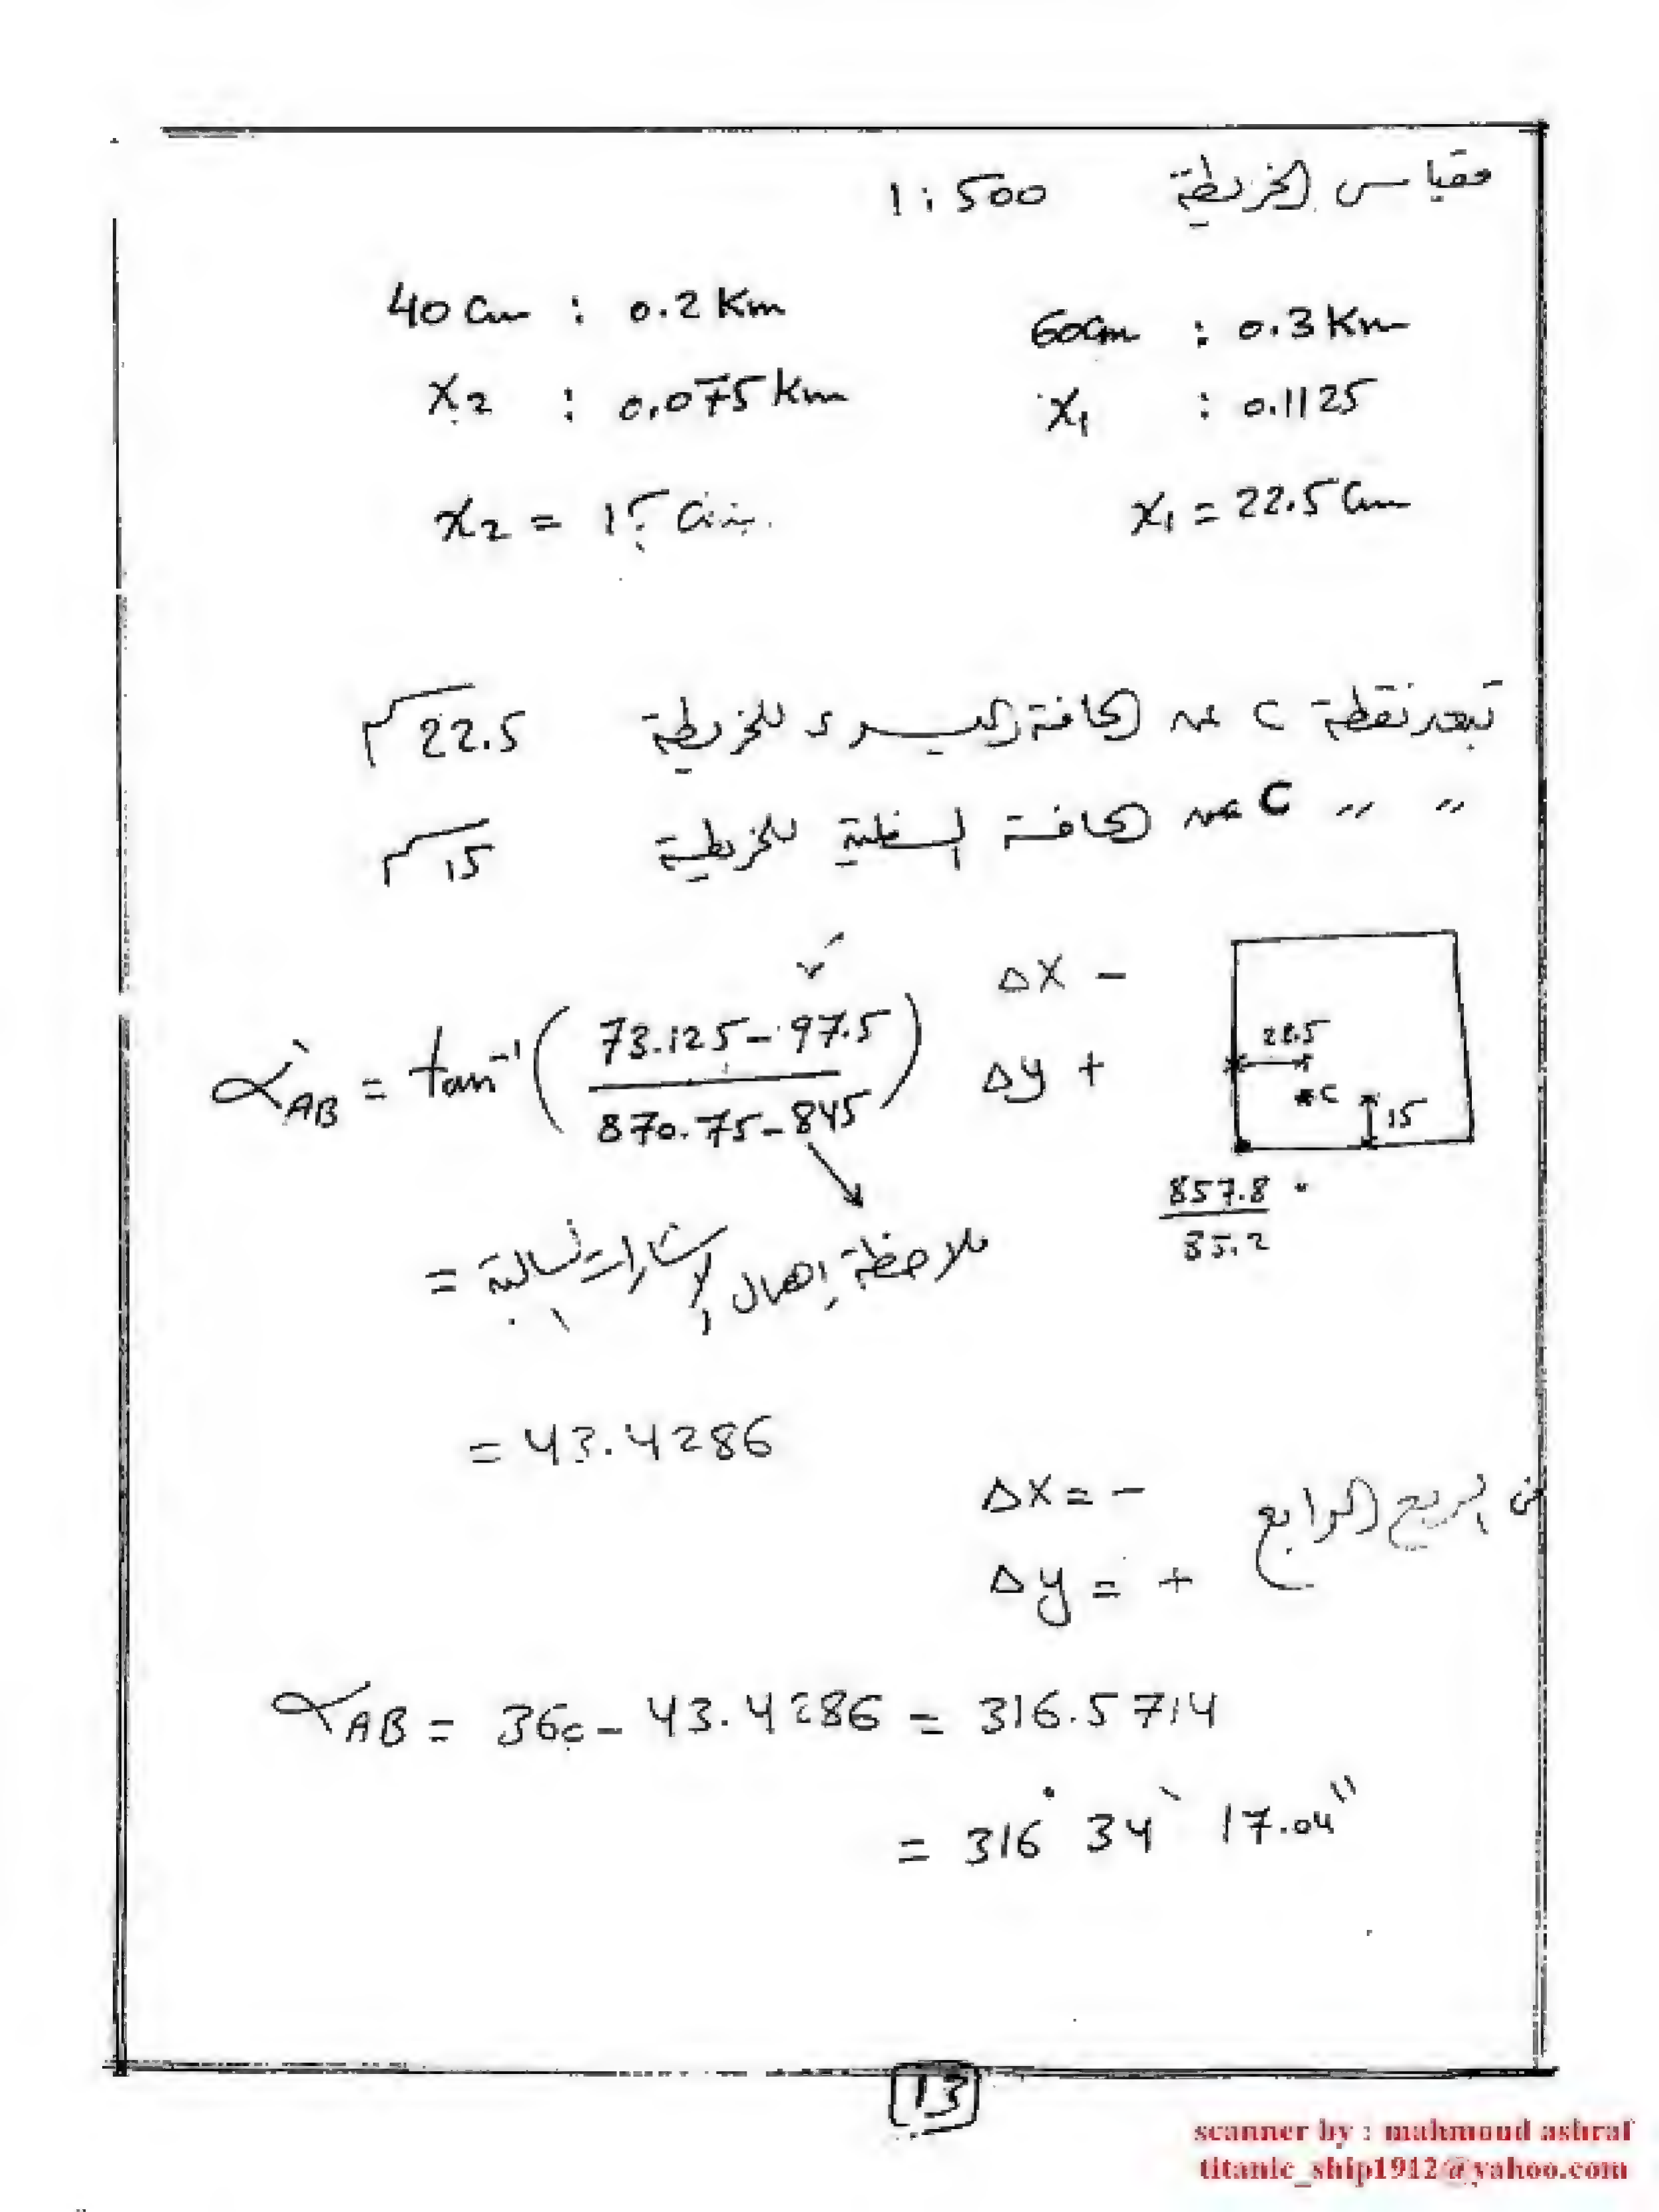 مقياس الخريطة 1:500
60cm : 0.3 Km
40 cm : 0.2 Km
X1 : 0.1125
X2 : 0.075 Km
X1 = 22.5 cm
X2 = 15 cm
تبعد نقطة C عن الحافة اليسرى للخريطة 22.5 سم
" " C عن الحافة السفلية للخريطة 15 سم
ΔX -
α'AB = tan⁻¹ ( 73.125 - 97.5 / 870.75 - 845 )
Δy +
22.5
C
15
857.8
85.2
= ملاحظة إهمال الإشارات السالبة
= 43.4286
في الربع الرابع
ΔX = -
Δy = +
αAB = 360 - 43.4286 = 316.5714
= 316° 34' 17.04"
13
scanner by : mahmoud ashraf
titanic_ship1912@yahoo.com